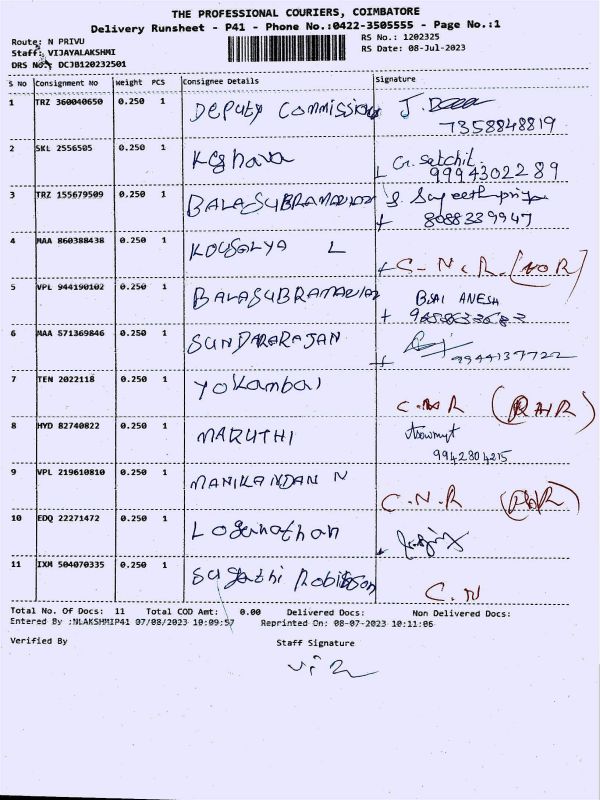 THE PROFESSIONAL COURIERS, COIMBATORE
Delivery Runsheet - P41 - Phone No.:0422-3505555 - Page No.:1
Route: N PRIVU
RS No.: 1202325
Staff: VIJAYALAKSHMI
RS Date: 08-Jul-2023
DRS No.: DCJB120232501
S No Consignment No Weight PCS Consignee Details Signature
1 TRZ 360040650 0.250 1 Deputy Commission
7358848819
2 SKL 2556505 0.250 1 Keshava G. Satchit
9994302289
3 TRZ 155679509 0.250 1 BALASUBRAMANIAN
8088339947
4 MAA 860388438 0.250 1 KOUSALYA L C.N.R. (NOR)
5 VPL 944190102 0.250 1 BALASUBRAMANIAN
6 MAA 571369846 0.250 1 SUNDARARAJAN
9944137722
7 TEN 2022118 0.250 1 Yokambal
8 HYD 82740822 0.250 1 MARUTHI
9942804215
9 VPL 219610810 0.250 1 MANIKANDAN N C.N.R
10 EDQ 22271472 0.250 1 Loganathan
11 IXM 504070335 0.250 1 C.N
Total No. Of Docs: 11 Total COD Amt: 0.00 Delivered Docs: Non Delivered Docs:
Entered By :NLAKSHMIP41 07/08/2023 10:09:57 Reprinted On: 08-07-2023 10:11:06
Verified By Staff Signature